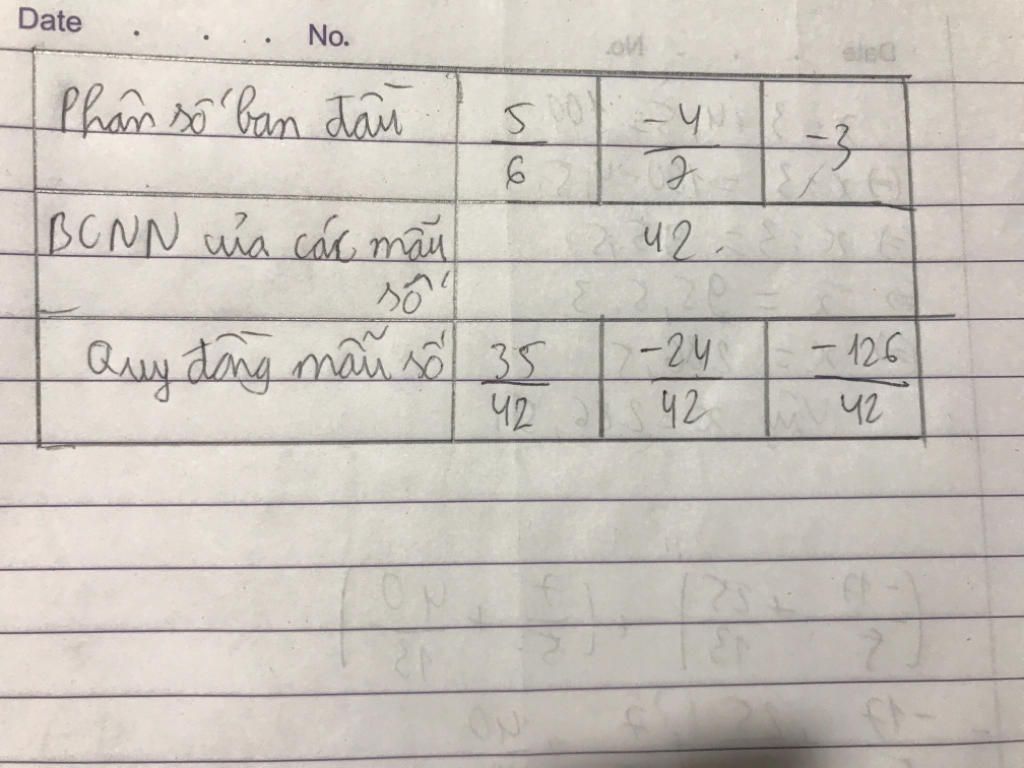 Date . . . No.
Phân số ban đầu 5/6 -4/7 -3
BCNN của các mẫu 42.
số
Quy đồng mẫu số 35/42 -24/42 -126/42